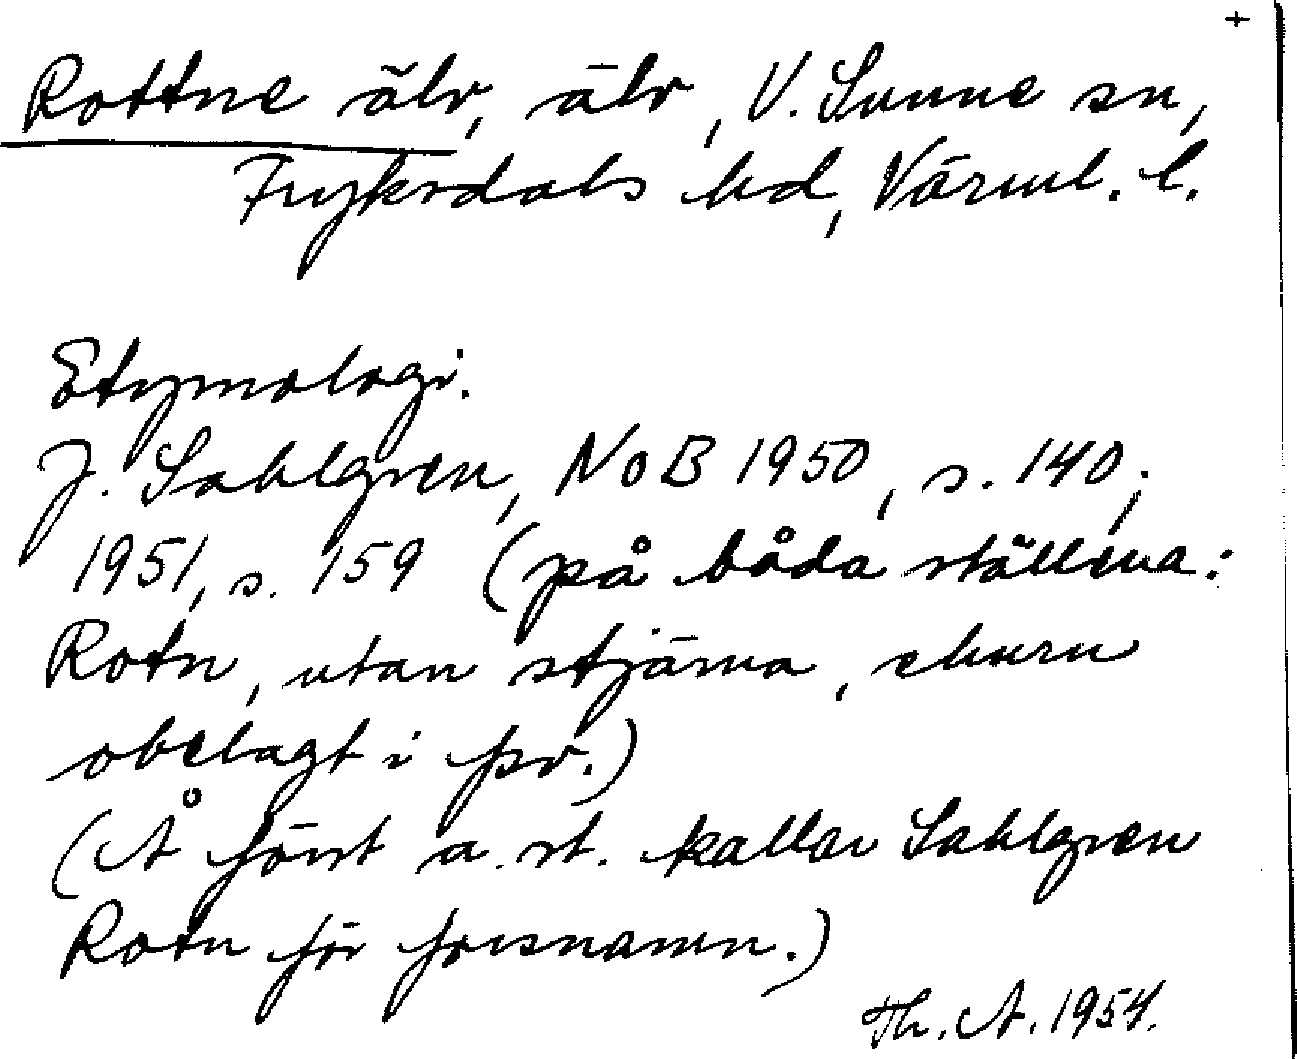 +
Rottne älv, älv, V. Sunne sn,
Fryksdals hd, Värml. l.
Etymologi.
J. Sahlgren, NoB 1950, s. 140;
1951, s. 159 (på båda ställena:
Rotn, utan stjärna, ehuru
obelagt i fsv.)
(Å först a. st. kallar Sahlgren
Rotn för forsnamn.)
Th. A. 1954.